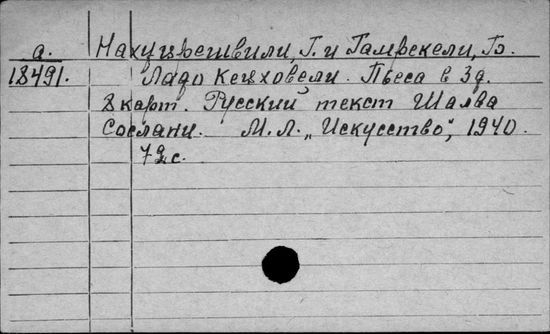 а. Нахуцрешвили, Г. и Гамрекели, Б.
18491. Ладо Кецховели. Пьеса в 3д.
8 карт. Русский текст Шалва
Сослани. М.Л. „Искусство", 1940.
72с.